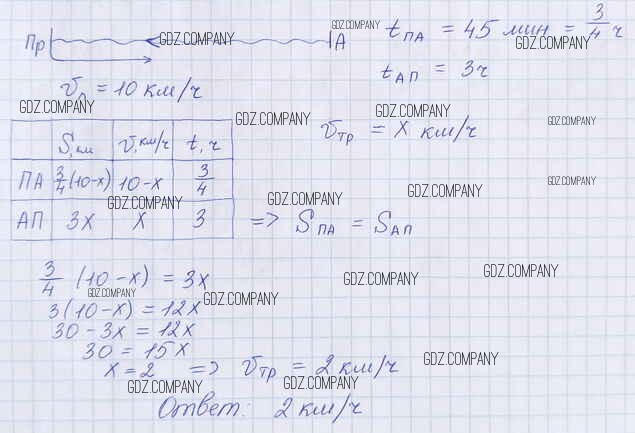 Пр A t ПА = 45 мин = 3/4 ч
GDZ.COMPANY GDZ.COMPANY GDZ.COMPANY
t АП = 3ч
v л = 10 км/ч
GDZ.COMPANY GDZ.COMPANY GDZ.COMPANY GDZ.COMPANY
v тр = x км/ч
S, км v, км/ч t, ч
ПА 3/4 (10-x) 10-x 3/4
GDZ.COMPANY GDZ.COMPANY GDZ.COMPANY GDZ.COMPANY
АП 3x x 3 => S ПА = S АП
3/4 (10-x) = 3x
GDZ.COMPANY GDZ.COMPANY GDZ.COMPANY GDZ.COMPANY
3(10-x) = 12x
30 - 3x = 12x
30 = 15x
x = 2 => v тр = 2 км/ч
GDZ.COMPANY GDZ.COMPANY GDZ.COMPANY
Ответ: 2 км/ч